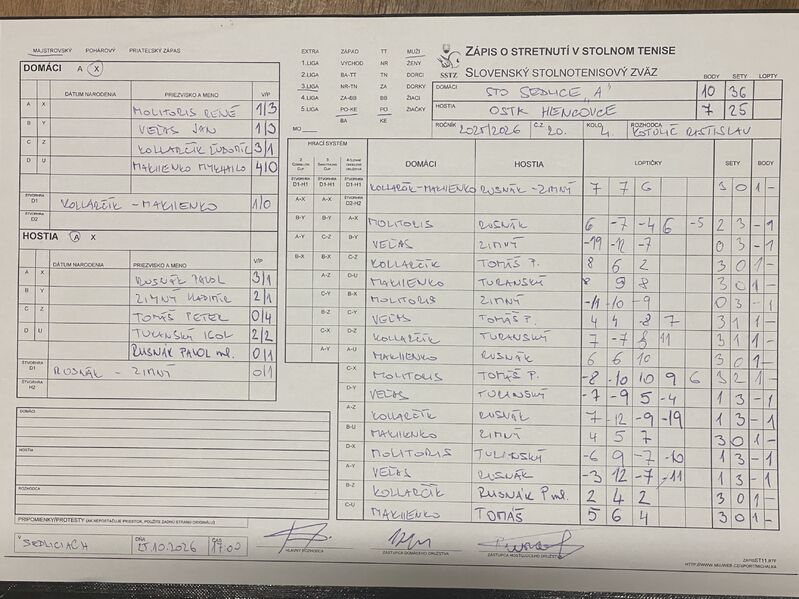 MAJSTROVSKÝ POHÁROVÝ PRIATEĽSKÝ ZÁPAS
DOMÁCI A X
DÁTUM NARODENIA PRIEZVISKO A MENO V/P
A X MOLITORIS RENÉ 1/3
B Y VEĽAS JÁN 1/3
C Z KOLLARČÍK ĽUDOVÍT 3/1
D U MAKIIENKO MYKHAILO 4/0
ŠTVORHRA D1 KOLLARČÍK - MAKIIENKO 1/0
ŠTVORHRA D2
HOSTIA A X
DÁTUM NARODENIA PRIEZVISKO A MENO V/P
A X RUSNÁK PAVOL 3/1
B Y ZIMNÝ VLADIMÍR 2/1
C Z TOMÁŠ PETER 0/4
D U TURANSKÝ IGOR 2/2
RUSNÁK PAVOL ml. 0/1
ŠTVORHRA D1 RUSNÁK - ZIMNÝ 0/1
ŠTVORHRA H2
DOMÁCI
HOSTIA
ROZHODCA
PRIPOMIENKY/PROTESTY (AK NEPOSTAČUJE PRIESTOR, POUŽITE ZADNÚ STRANU ORIGINÁLU)
V SEDLICIACH DŇA ČAS 17:00
HLAVNÝ ROZHODCA
ZÁSTUPCA DOMÁCEHO DRUŽSTVA
ZÁSTUPCA HOSŤUJÚCEHO DRUŽSTVA
EXTRA ZÁPAD TT MUŽI
1.LIGA VÝCHOD NR ŽENY
2.LIGA BA-TT TN DORCI
3.LIGA NR-TN ZA DORKY
4.LIGA ZA-BB BB ŽIACI
5.LIGA PO-KE PO ŽIAČKY
BA KE
MO
SSTZ
ZÁPIS O STRETNUTÍ V STOLNOM TENISE
SLOVENSKÝ STOLNOTENISOVÝ ZVÄZ
BODY SETY LOPTY
DOMÁCI STO SEDLICE "A" 10 36
HOSTIA OSTK HENCOVCE 7 25
ROČNÍK 2025/2026 Č.Z. 20. KOLO 4. ROZHODCA KOTULIČ RASTISLAV
HRACÍ SYSTÉM DOMÁCI HOSTIA LOPTIČKY SETY BODY
ŠTVORHRA D1-H1 ŠTVORHRA D1-H1 ŠTVORHRA D1-H1 KOLLARČÍK-MAKIIENKO RUSNÁK - ZIMNÝ 7 7 6 3 0 1 -
A-X A-X D2-H2
B-Y B-Y A-X MOLITORIS RUSNÁK 6 -7 -4 6 -5 2 3 - 1
A-Y C-Z B-Y VEĽAS ZIMNÝ -19 -12 -7 0 3 - 1
B-X B-X C-Z KOLLARČÍK TOMÁŠ P. 8 6 2 3 0 1 -
A-Z D-U MAKIIENKO TURANSKÝ 8 9 8 3 0 1 -
C-Y B-X MOLITORIS ZIMNÝ -11 -10 -9 0 3 - 1
B-Z C-Y VEĽAS TOMÁŠ P. 4 4 -8 7 3 1 1 -
C-X D-Z KOLLARČÍK TURANSKÝ 7 -7 8 11 3 1 1 -
A-Y A-U MAKIIENKO RUSNÁK 6 6 10 3 0 1 -
C-X MOLITORIS TOMÁŠ P. -8 -10 10 9 6 3 2 1 -
D-Y VEĽAS TURANSKÝ -7 -9 5 -4 1 3 - 1
A-Z KOLLARČÍK RUSNÁK 7 -12 -9 -19 1 3 - 1
B-U MAKIIENKO ZIMNÝ 4 5 7 3 0 1 -
D-X MOLITORIS TURANSKÝ -6 9 -7 -10 1 3 - 1
A-Y VEĽAS RUSNÁK -3 12 -7 -11 1 3 - 1
B-Z KOLLARČÍK RUSNÁK P. ml. 2 4 2 3 0 1 -
C-U MAKIIENKO TOMÁŠ 5 6 4 3 0 1 -